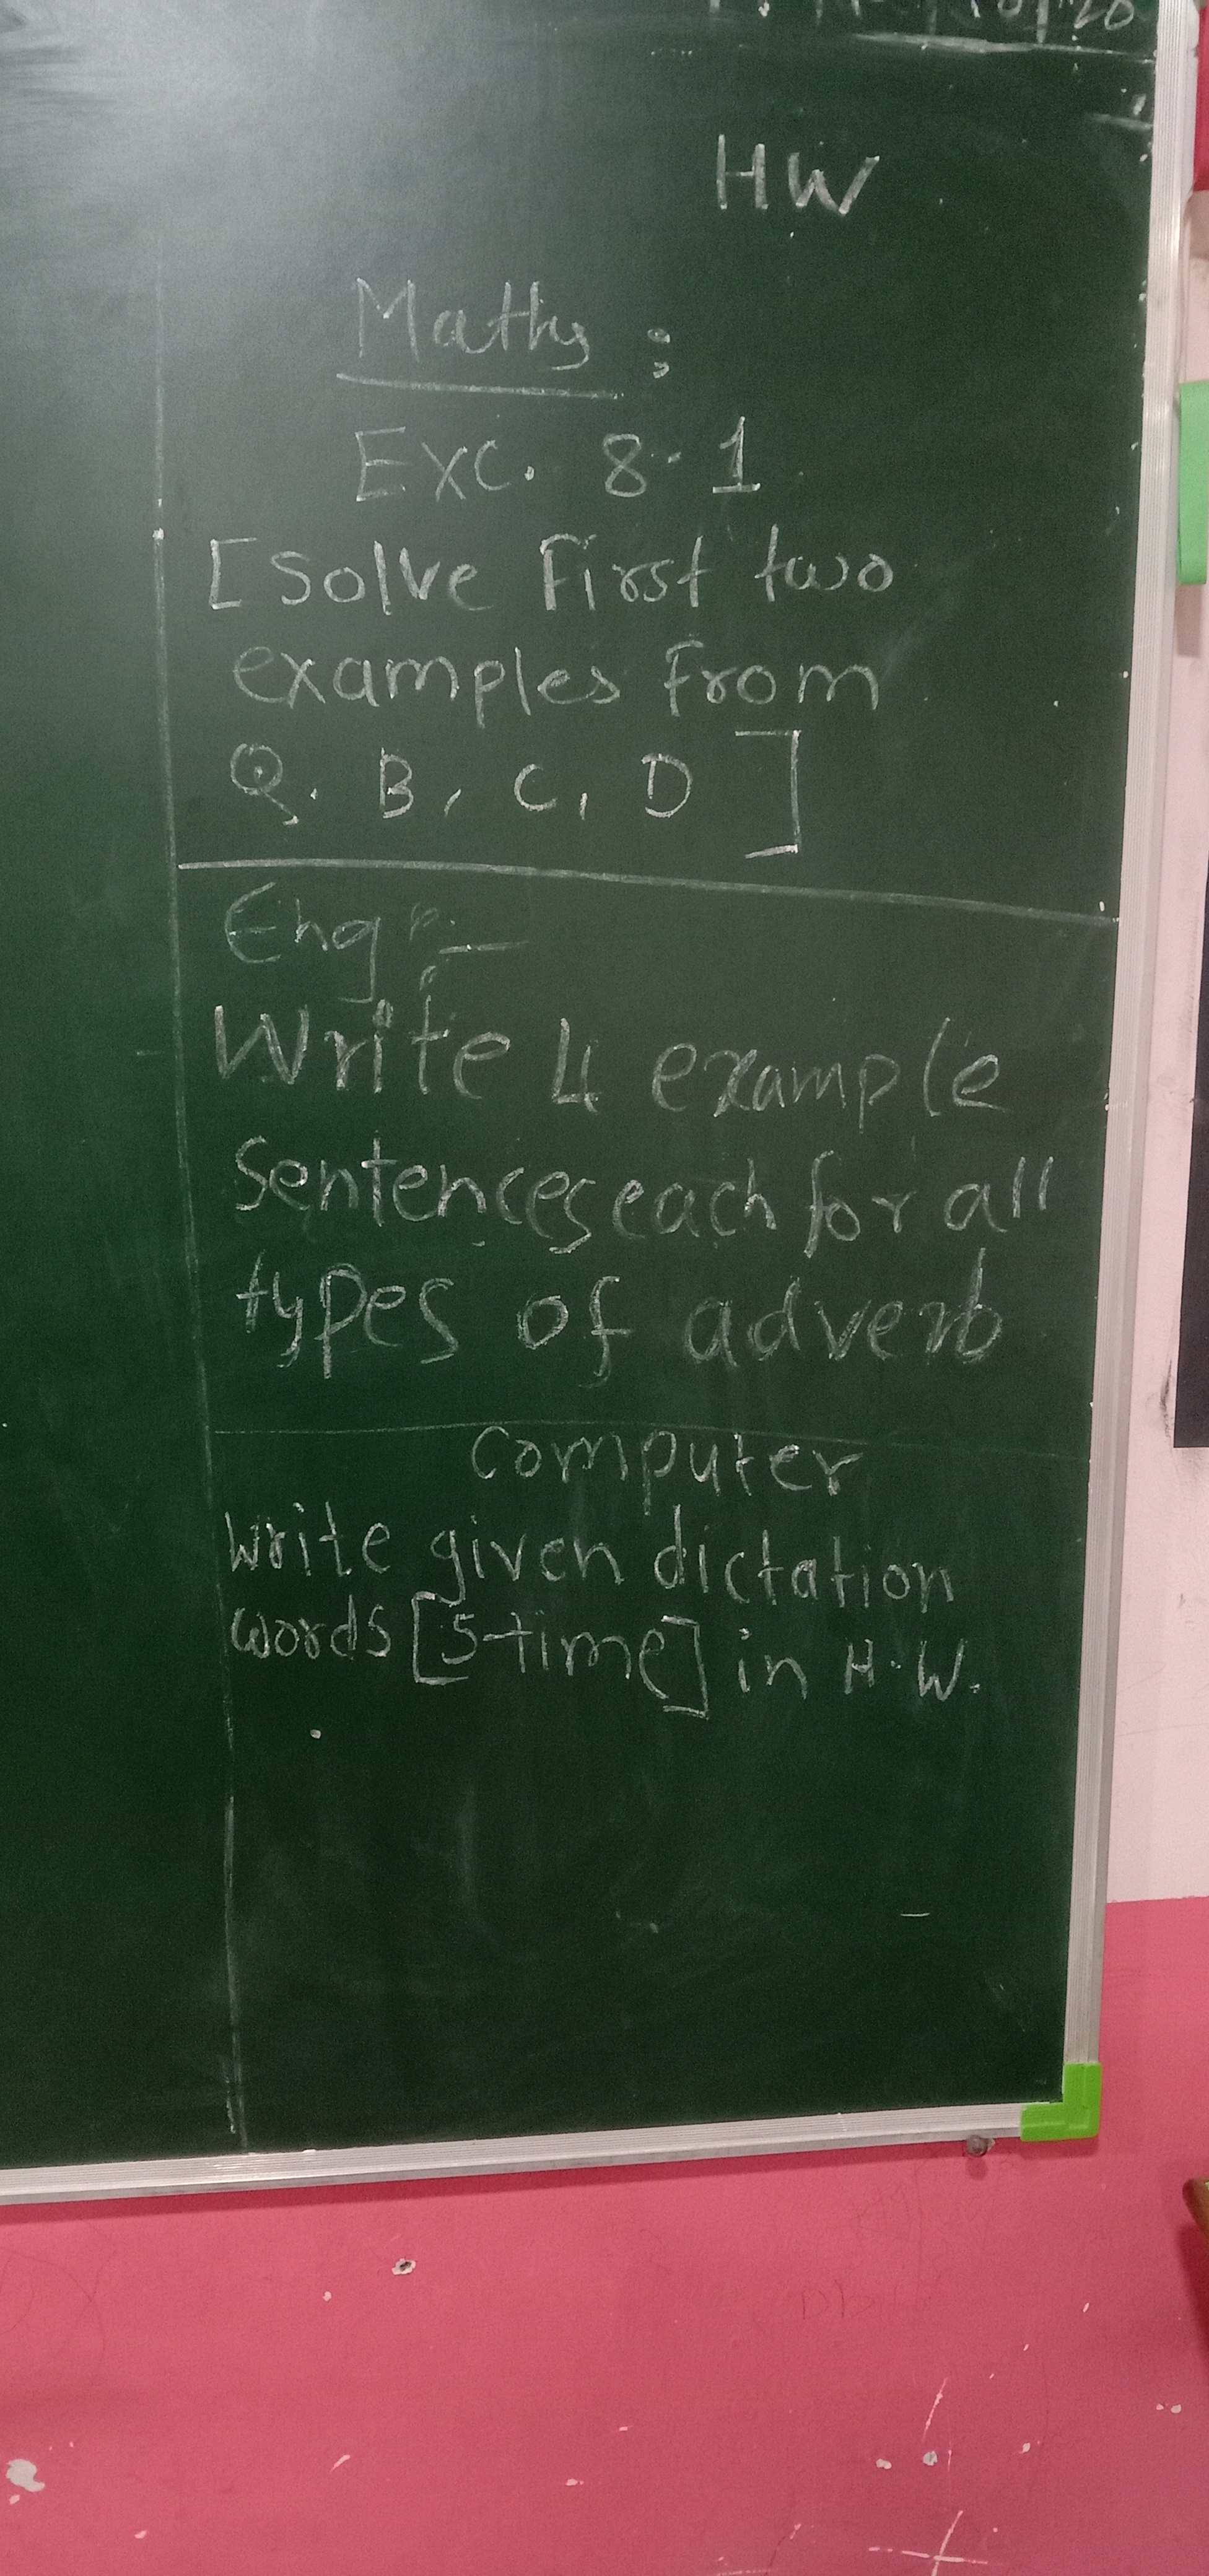 HW
Maths :
Exc. 8.1
[Solve First two
examples From
Q. B, C, D ]
Eng :-
Write 4 example
Sentences each for all
types of adverb
Computer
Write given dictation
words [5-time] in H.W.